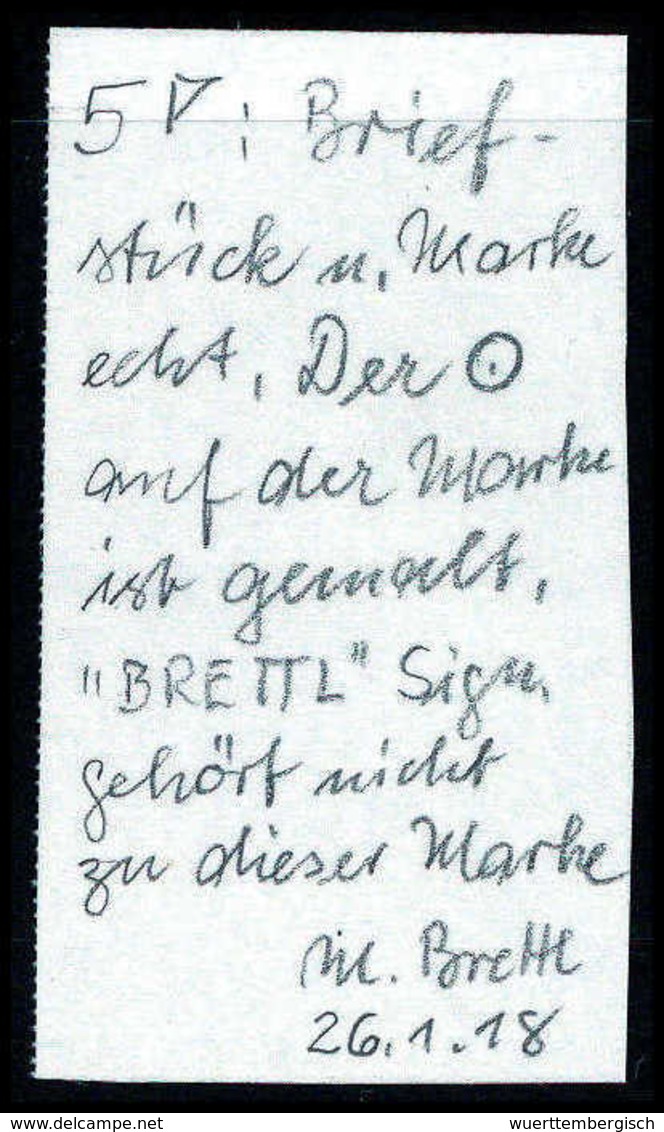 5 ▽: Brief-
stück u. Marke
echt. Der ⊙
auf der Marke
ist gemalt,
"BRETTL" Sign.
gehört nicht
zu dieser Marke
M. Brettl
26.1.18
www.delcampe.net
wuerttembergisch